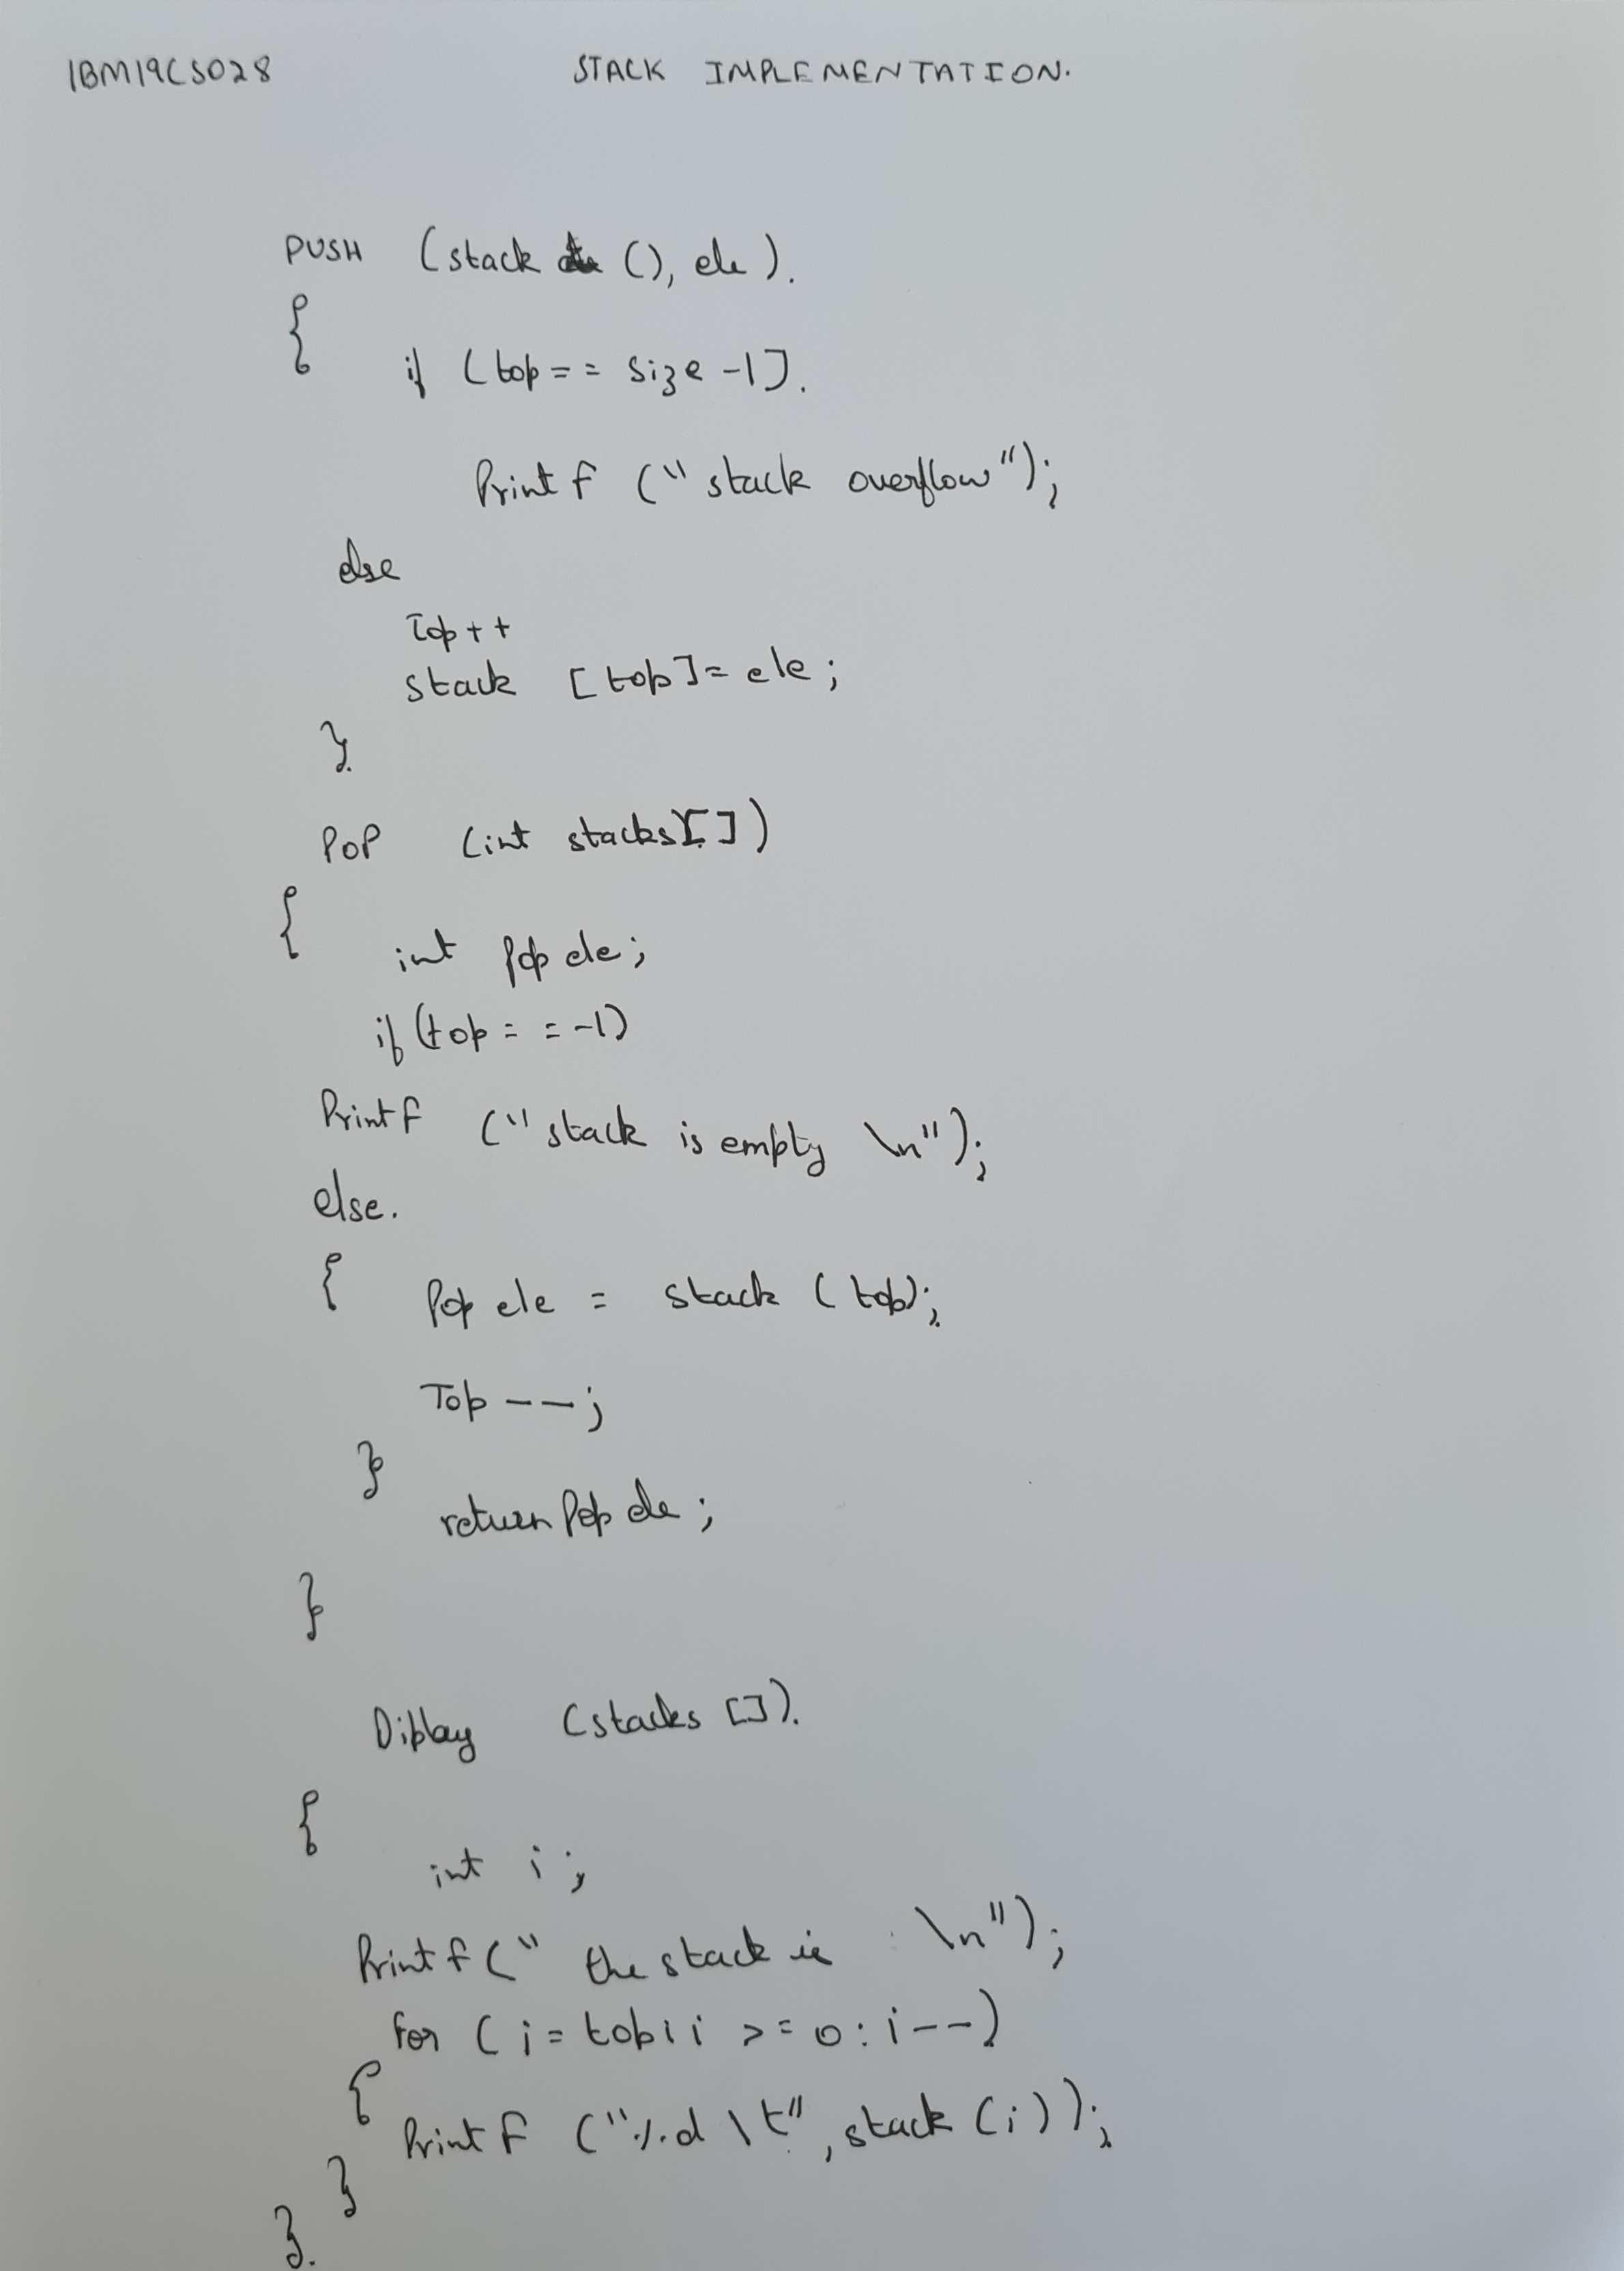 1BM19CS028 STACK IMPLEMENTATION.
PUSH (stack (), ele).
{
if (top== size -1].
Printf ("stack overflow");
else
Top++
stack [top]= ele;
}.
POP (int stacks[])
{
int Pop ele;
if (top= =-1)
Printf ("stack is empty \n");
else.
{ Pop ele = stack (top);
Top --;
}
return Pop ele;
}
Diplay (stacks []).
{
int i;
Printf (" the stack is : \n");
for (i= top; i >= 0: i--)
{
Printf ("%d \t", stack (i));
}
}.